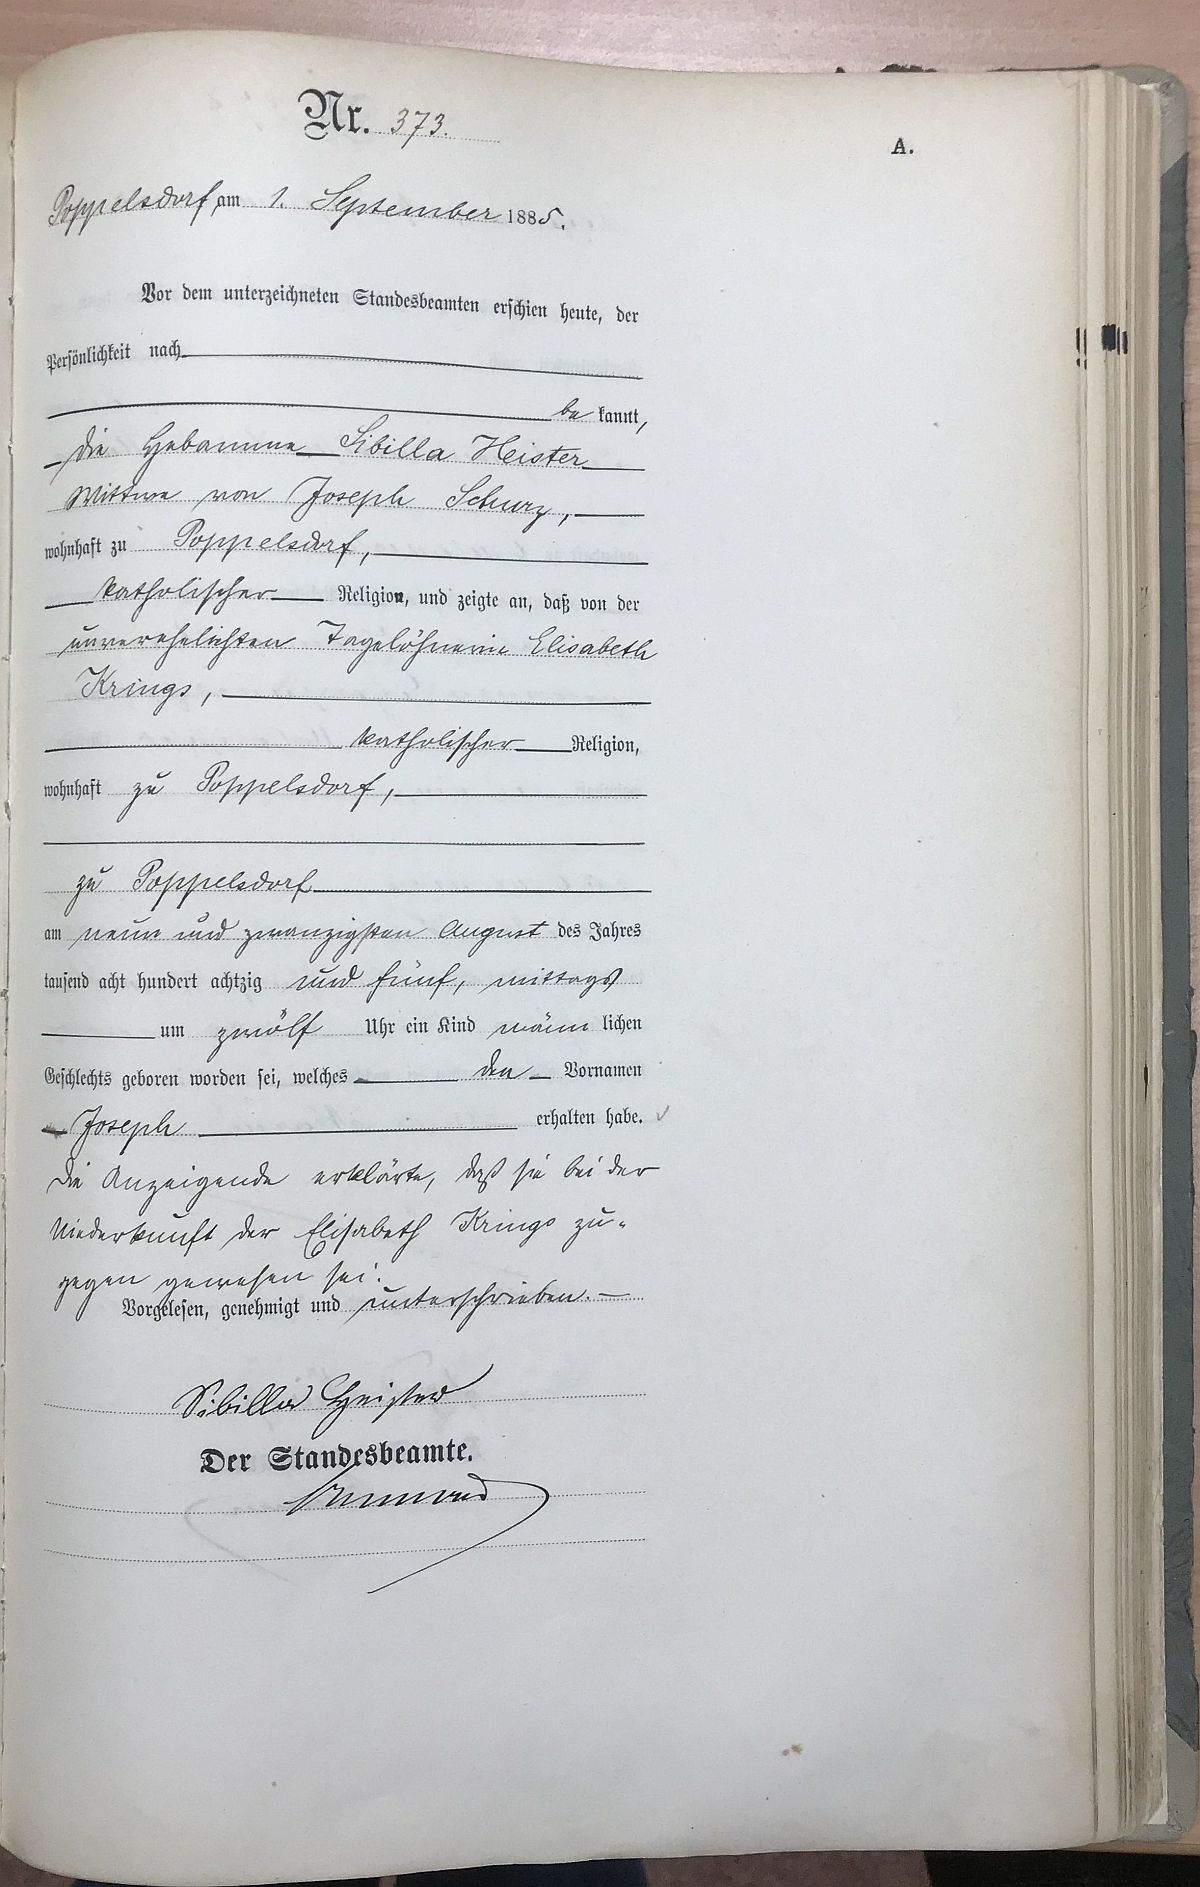 Nr. 373.
A.
Poppelsdorf, am 1. September 1885.
Vor dem unterzeichneten Standesbeamten erschien heute, der
Persönlichkeit nach
be kannt,
die Hebamme Sibilla Heister
Wittwe von Joseph Schurz,
wohnhaft zu Poppelsdorf,
katholischer Religion, und zeigte an, daß von der
unverehelichten Tagelöhnerin Elisabeth
Krings,
katholischer Religion,
wohnhaft zu Poppelsdorf,
zu Poppelsdorf
am neun und zwanzigsten August des Jahres
tausend acht hundert achtzig und fünf, mittags
um zwölf Uhr ein Kind männ lichen
Geschlechts geboren worden sei, welches den Vornamen
Joseph erhalten habe.
Die Anzeigende erklärte, daß sie bei der
Niederkunft der Elisabeth Krings zu-
gegen gewesen sei.
Vorgelesen, genehmigt und unterschrieben.
Sibilla Heister
Der Standesbeamte.